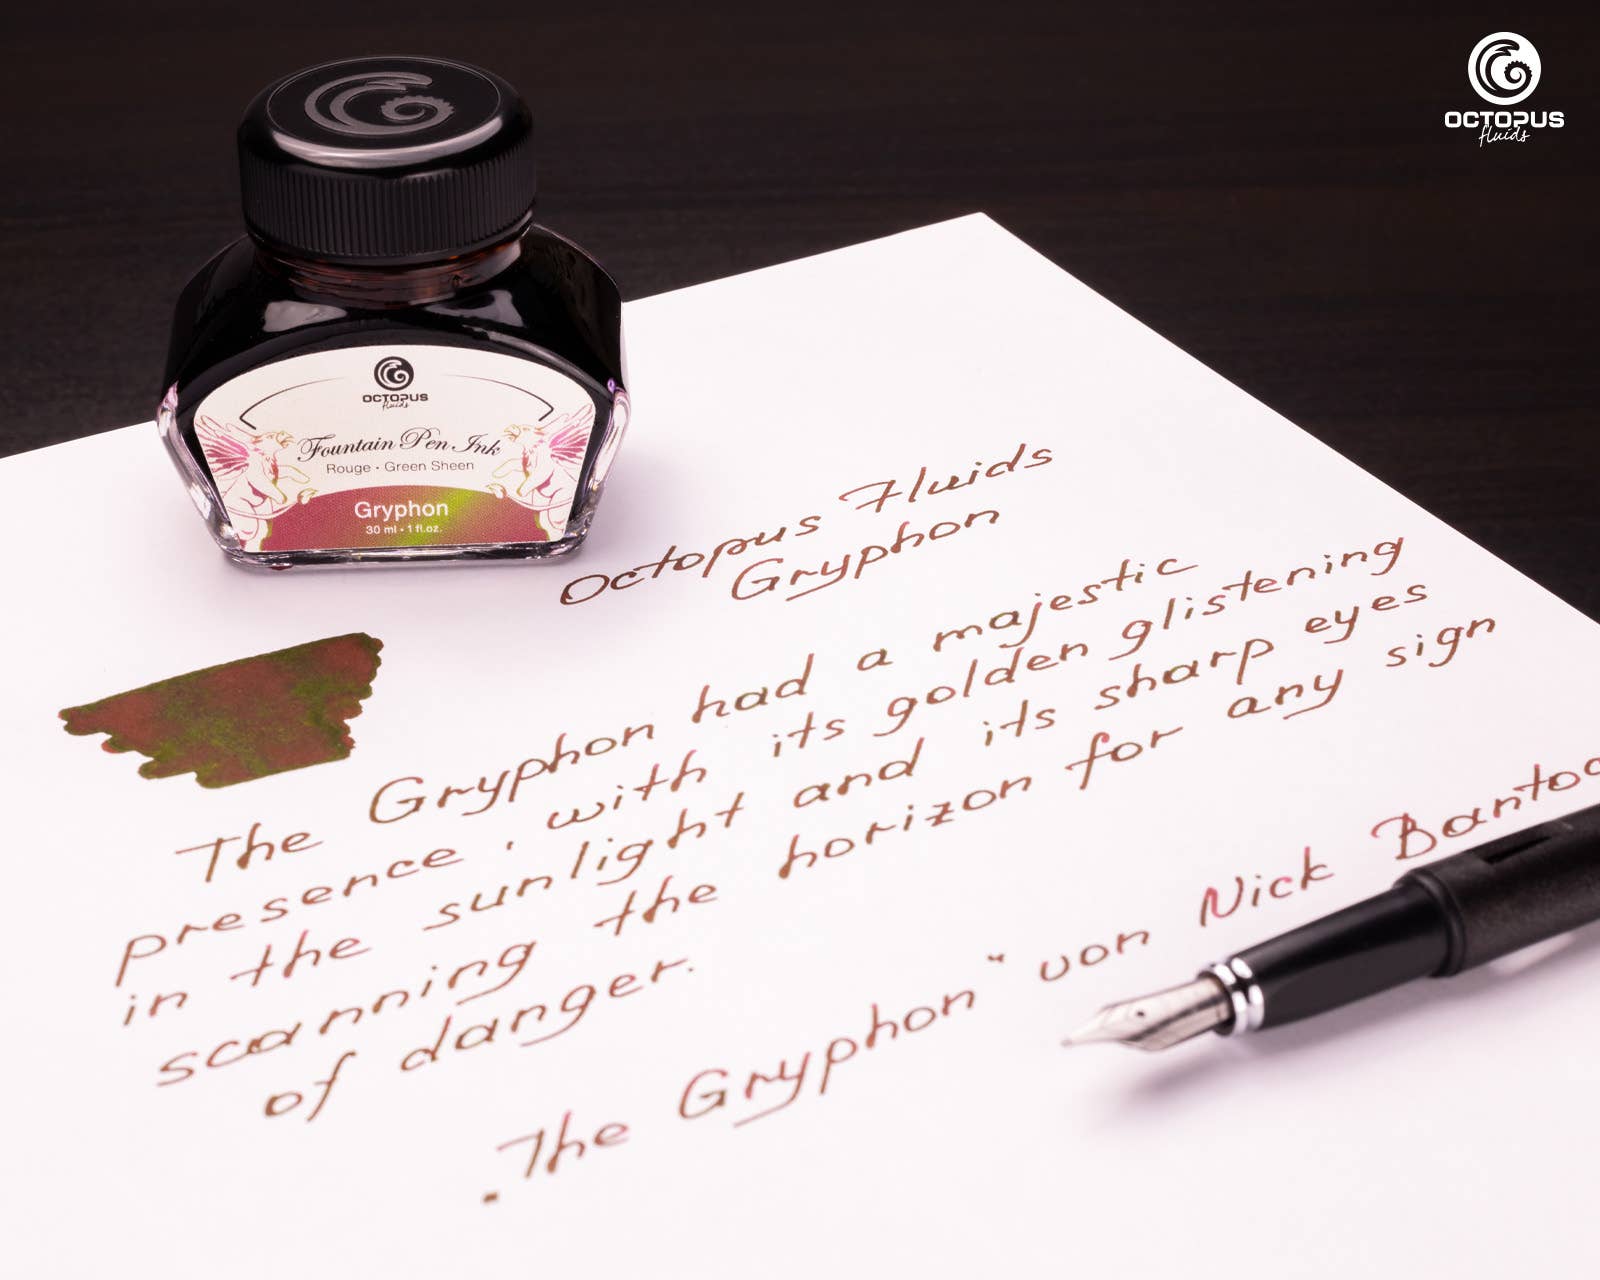 OCTOPUS
fluids
OCTOPUS
fluids
Fountain Pen Ink
Rouge · Green Sheen
Gryphon
30 ml · 1 fl.oz.
Octopus Fluids
Gryphon
The Gryphon had a majestic
presence, with its golden glistening
in the sunlight and its sharp eyes
scanning the horizon for any sign
of danger.
"The Gryphon" von Nick Bantoc